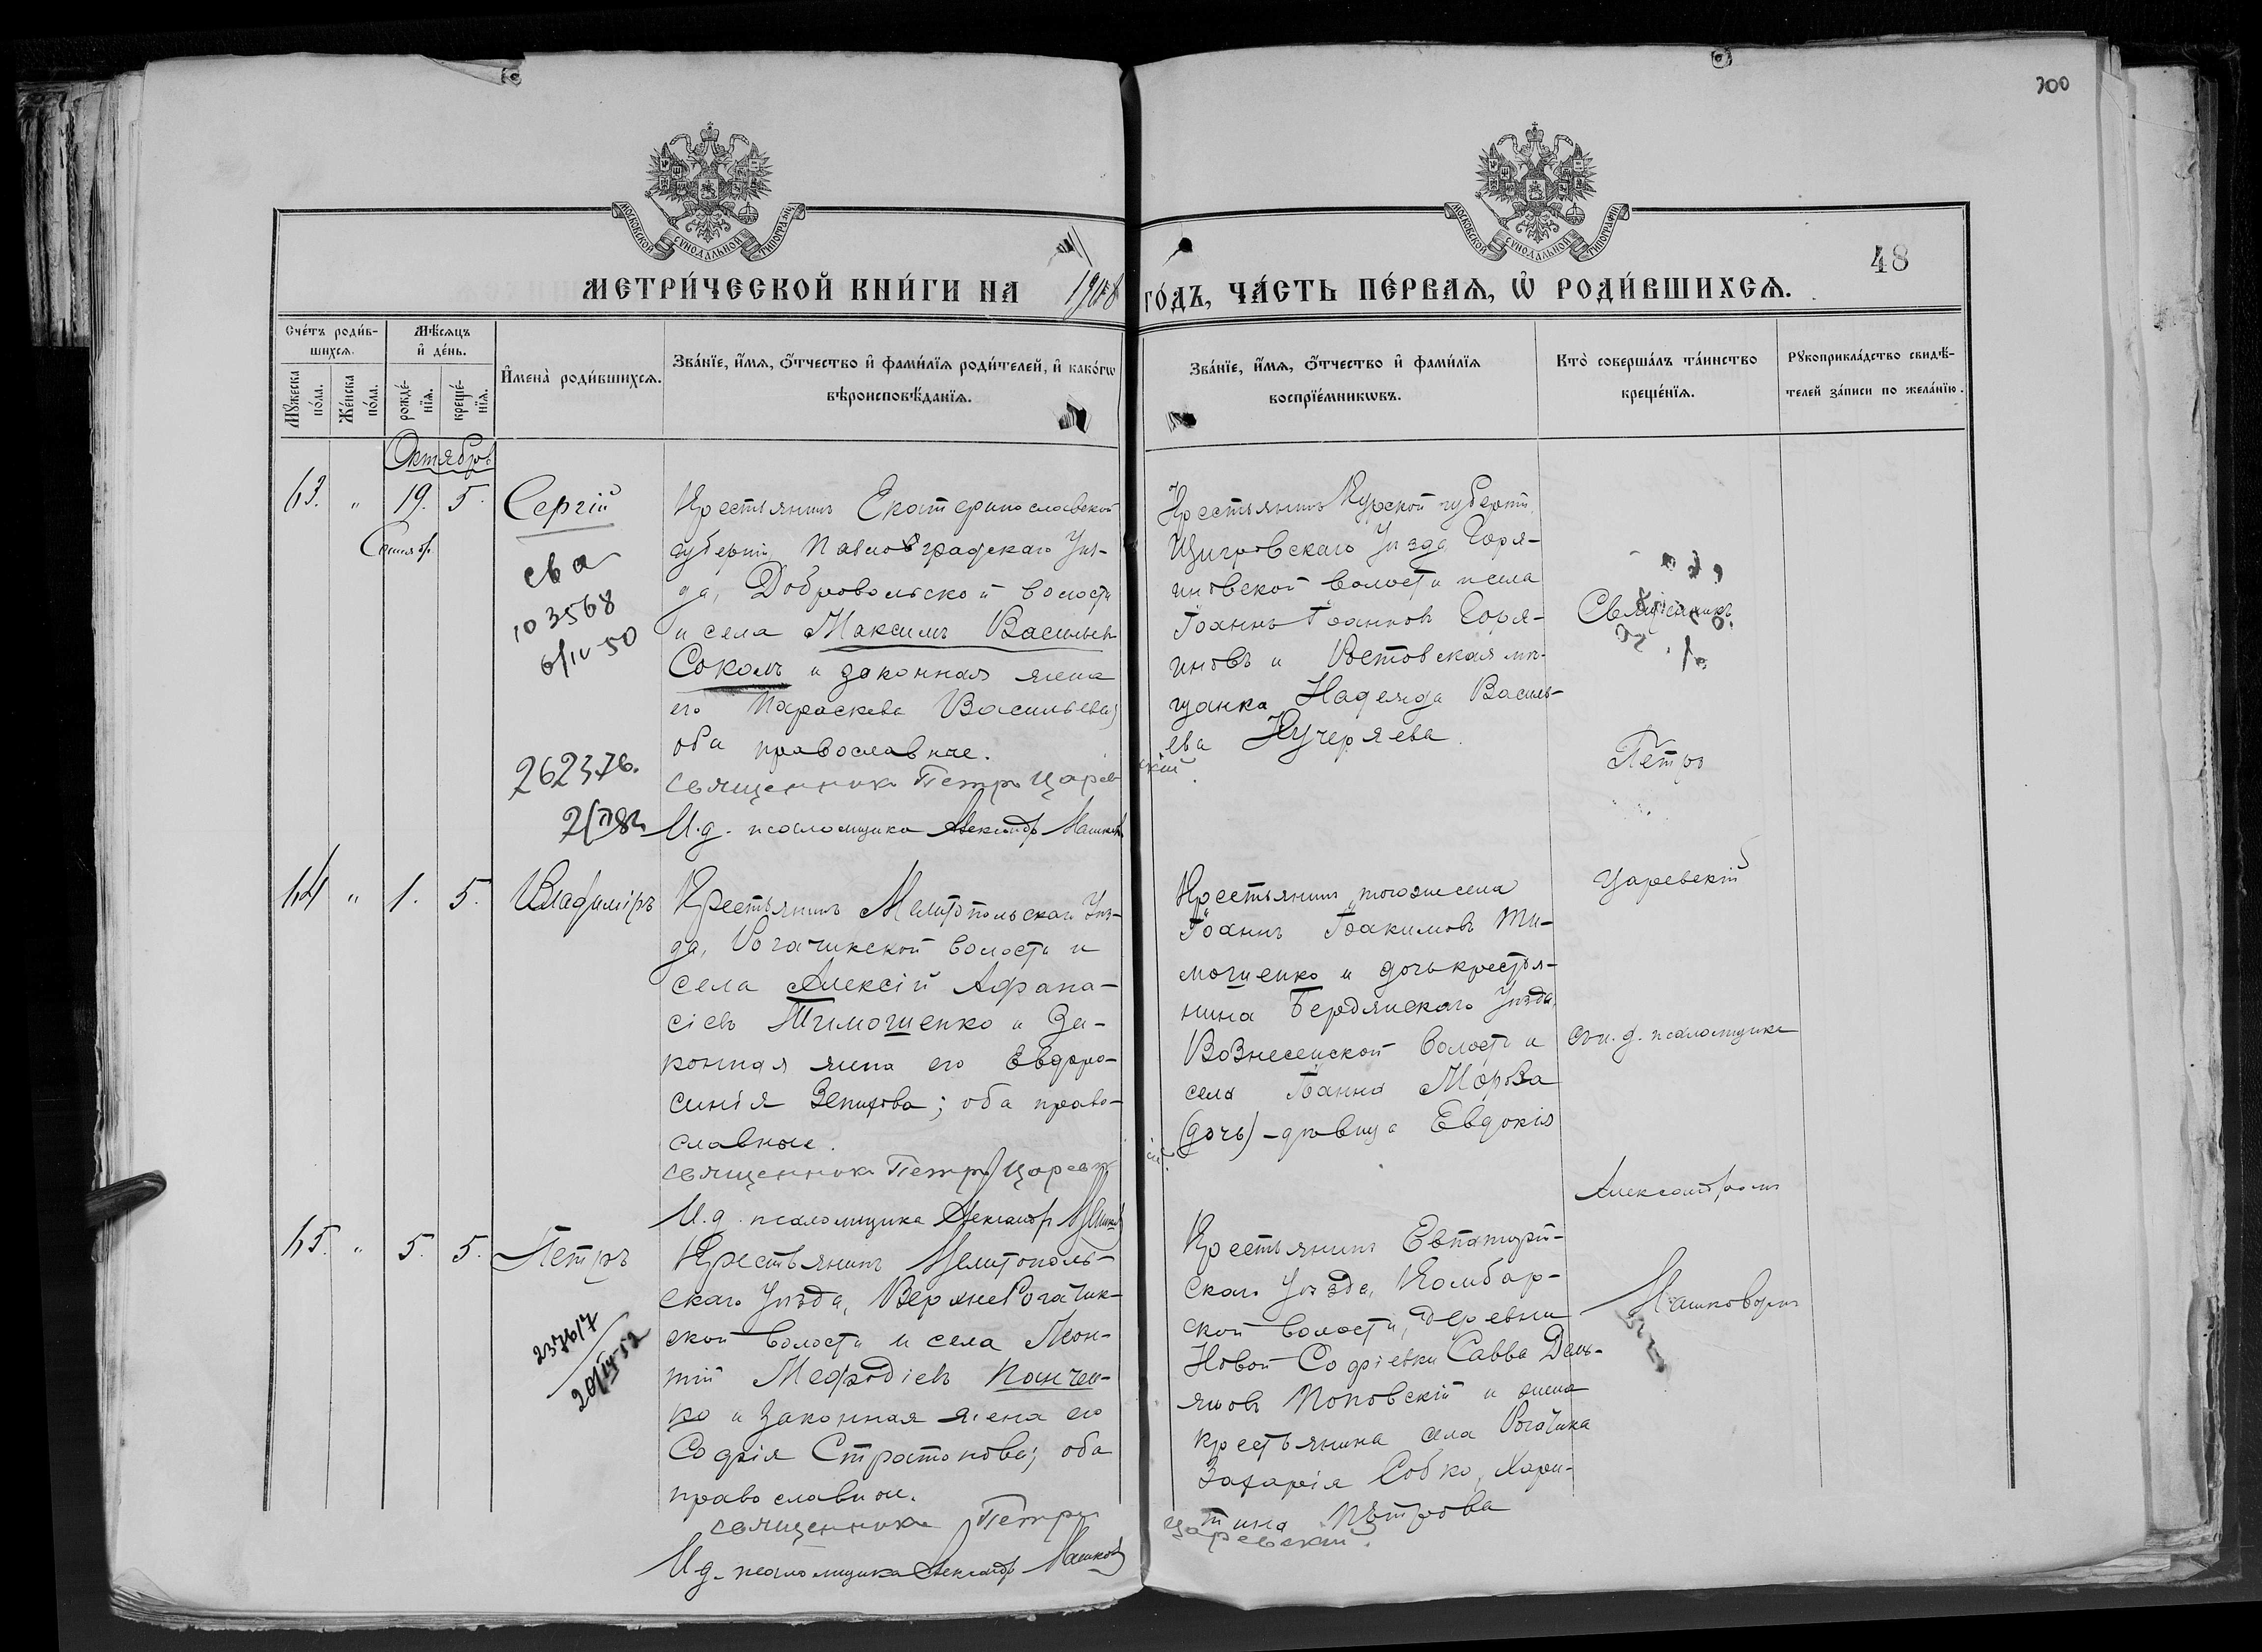 300
МОСКОВСКОЙ СѴНОДАЛЬНОЙ ТИПОГРАФІИ
МОСКОВСКОЙ СѴНОДАЛЬНОЙ ТИПОГРАФІИ
48
МЕТРИ́ЧЕСКОЙ КНИ́ГИ НА 1908 ГО́ДЪ, ЧА́СТЬ ПЕ́РВАѦ, Ѡ҆ РОДИ́ВШИХСѦ.
Сче́тъ роди́в-
шихсѧ.
Мꙋ́жеска по́ла.
Же́нска по́ла.
Мѣ́сѧцъ
и҆ де́нь.
рожде́-
нїѧ.
креще́-
нїѧ.
И҆мена̀ роди́вшихсѧ.
Зва́нїе, и҆́мѧ, ѻ҆́тчество и҆ фами́лїѧ роди́телей, и҆ како́гѡ
вѣроисповѣ́данїѧ.
Зва́нїе, и҆́мѧ, ѻ҆́тчество и҆ фами́лїѧ
воспрїе́мникѡвъ.
Кто̀ соверша́лъ та́инство
креще́нїѧ.
Рꙋкоприкла́дство свидѣ́-
телей за́писи по жела́нїю.
Октябрь
63. " 19. 5. Сергій
Сентябр.
сва
103568
6/IV-50
262376.
Крестьянинъ Екатеринославской
губерніи, Павлоградскаго Уѣз-
да, Добровольской волости
и села Максимъ Васильевъ
Соколъ и законная жена
его Параскева Васильева;
оба православные.
священникъ Петръ Царевскій.
И.д. псаломщика Александръ Машковъ
Крестьянинъ Курской губерніи,
Щигровскаго Уѣзда Горя-
иновской волости и села
Іоаннъ Іоанновъ Горя-
иновъ и Ростовская мѣ-
щанка Надежда Василь-
ева Кучеряева.
Священникъ
Петръ
Царевскій
съ и. д. псаломщика
Александромъ
Машковымъ
64 " 1. 5. Владиміръ
Крестьянинъ Мелитопольскаго Уѣз-
да, Рогачикской волости и
села Алексій Афана-
сіевъ Тимошенко и за-
конная жена его Евфро-
синія; оба право-
славные.
священникъ Петръ Царевскій.
И.д. псаломщика Александръ Машковъ
Крестьянинъ того же села
Іоаннъ Іоакимовъ Ти-
мошенко и дочь крестья-
нина Бердянскаго Уѣзда,
Вознесенской волости и
села Іоанна Мороза
(дочь) - дѣвица Евдокія
65. " 5. 5. Петръ
237617
20/IV-52
Крестьянинъ Мелитополь-
скаго Уѣзда, ВерхнеРогачик-
ской волости и села Леон-
тій Мефодіевъ Панчен-
ко и законная жена его
Софія Стратонова; оба
православные.
священникъ Петръ Царевскій.
И.д. псаломщика Александръ Машковъ
Крестьянинъ Евпаторій-
скаго Уѣзда, Камбар-
ской волости, деревни
Новой Софіевки Савва Демь-
яновъ Поповскій и жена
крестьянина села Рогачика
Захарія Собко, Хари-
тина Петрова